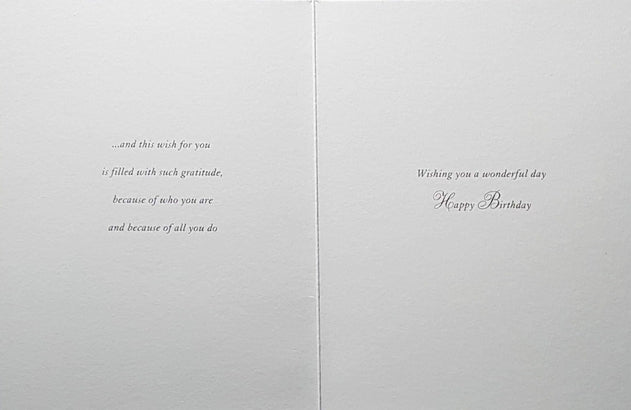 ...and this wish for you
is filled with such gratitude,
because of who you are
and because of all you do
Wishing you a wonderful day
Happy Birthday